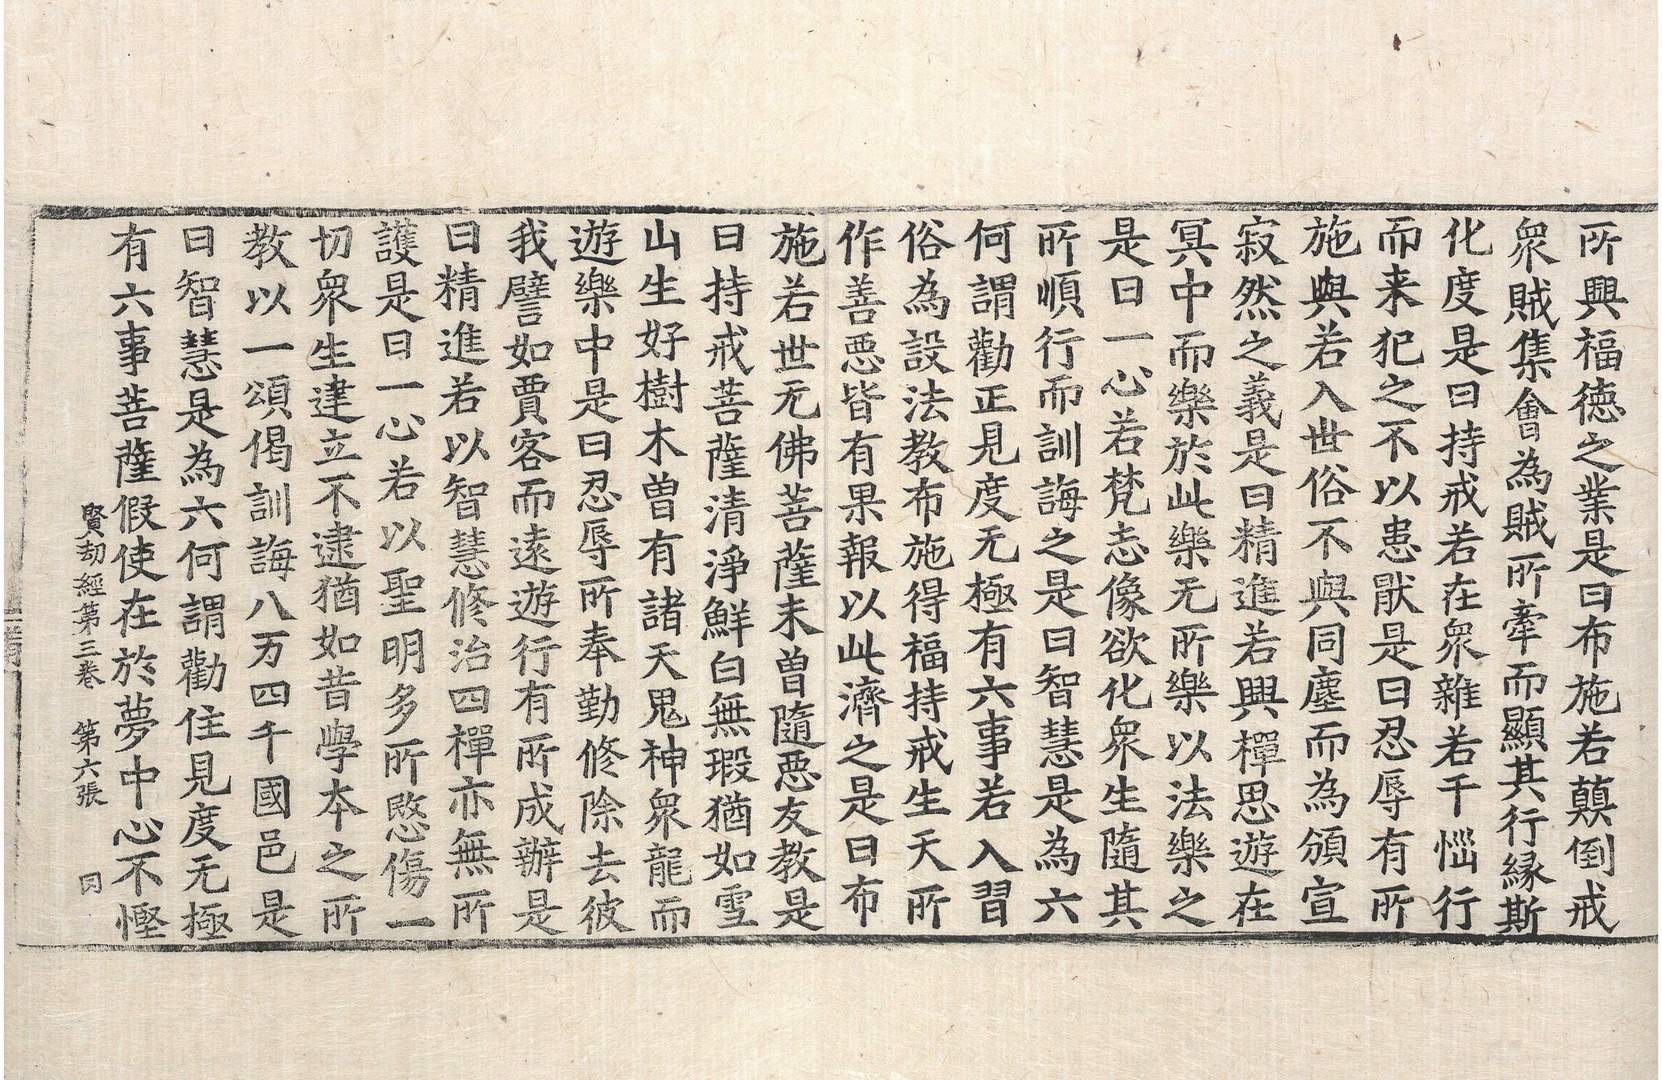 所興福德之業是曰布施若顛倒戒
衆賊集會為賊所牽而顯其行縁斯
化度是曰持戒若在衆雜若干惱行
而来犯之不以患猒是曰忍辱有所
施與若入世俗不與同塵而為頒宣
寂然之義是曰精進若興禪思遊在
冥中而樂於此樂无所樂以法樂之
是曰一心若梵志像欲化衆生隨其
所順行而訓誨之是曰智慧是為六
何謂勸正見度无極有六事若入習
俗為設法教布施得福持戒生天所
作善惡皆有果報以此濟之是曰布
施若世无佛菩薩未曽隨惡友教是
曰持戒菩薩清淨鮮白無瑕猶如雪
山生好樹木曽有諸天鬼神衆龍而
遊樂中是曰忍辱所奉勤修除去彼
我譬如賈客而遠遊行有所成辦是
曰精進若以智慧修治四禪亦無所
護是曰一心若以聖明多所愍傷一
切衆生建立不逮猶如昔學本之所
教以一頌偈訓誨八万四千國邑是
曰智慧是為六何謂勸住見度无極
有六事菩薩假使在於夢中心不慳
賢劫經第三卷 第六張 同